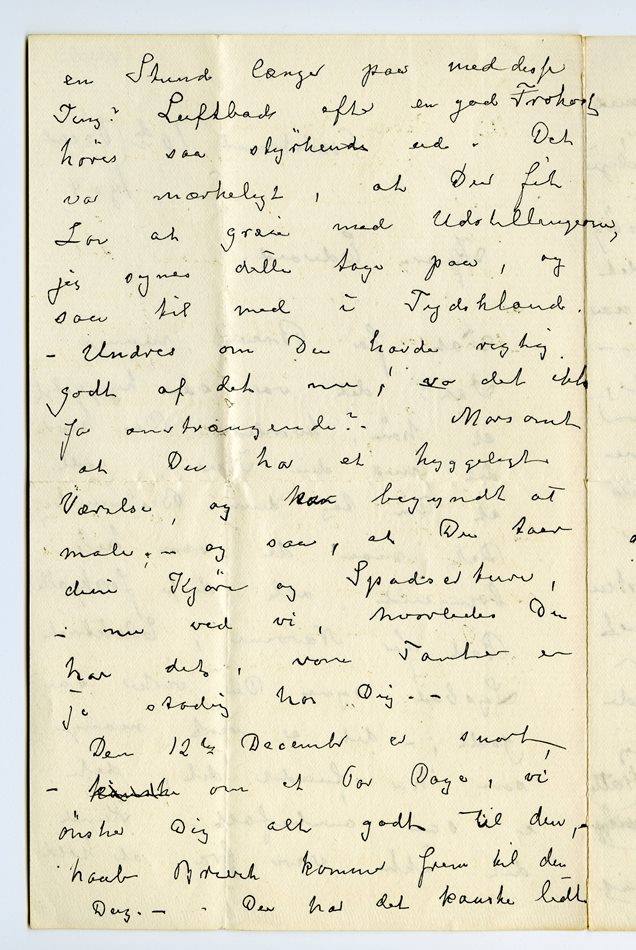 en Stund længer paa med disse
Ting? Luftbads efter en god Frokost
høres saa styrkende ud. Det
var mærkeligt, at Du fik
Lov at greie med Udstillingerne,
jeg synes dette tage paa, og
saa til med i Tydskland.
- Undres om Du havde rigtig
godt af det nu, var det ikke
for anstrængende? - Morsomt
at Du har et hyggeligt
Værelse, og begyndt at
male; - og saa, at Du taar
dine Kjøre og Spadserture,
- nu ved vi, hvorledes Du
har det, vore Tanker er
jo stadig hos Dig. -
Den 12te December er snart,
- om et Par Dage, vi
ønsker Dig alt godt til den, -
haab Brevet kommer frem til den
Dag. - - Du har det kanske lidt